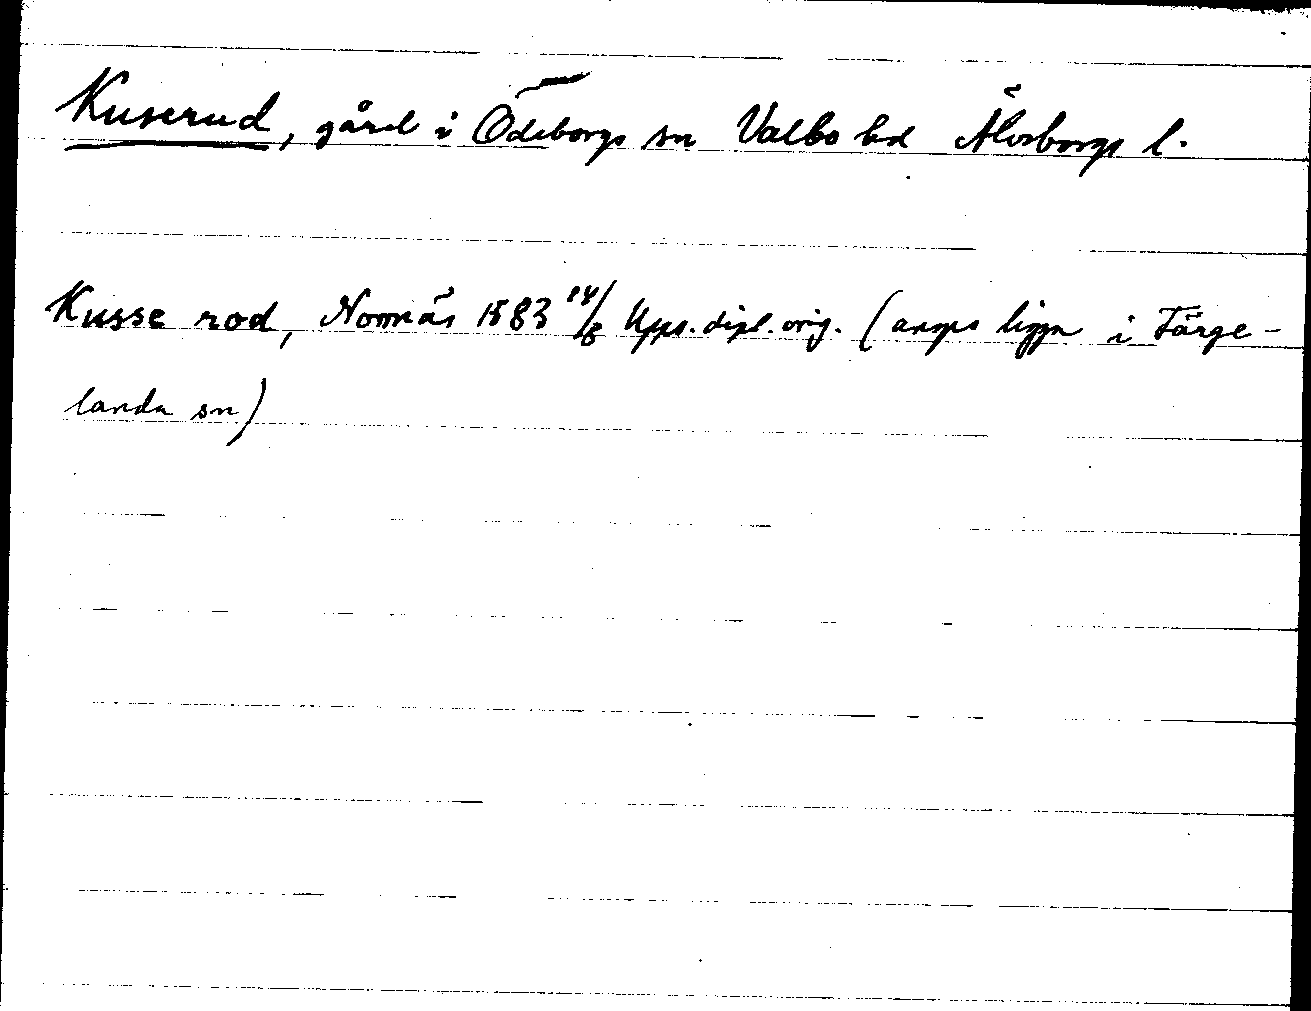 Kuserud, gård i Ödeborgs sn Valbo hd Älvsborgs l.
Kusse rod, Nornäs 1583 14/8 Upps. dipl. orig. (anges ligga i Färge-
landa sn)